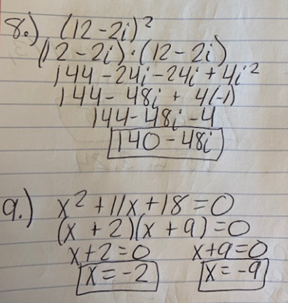 8.) (12-2i)²
(12-2i)·(12-2i)
144-24i-24i+4i²
144-48i+4(-1)
144-48i-4
140-48i
9.) x²+11x+18=0
(x+2)(x+9)=0
x+2=0 x+9=0
x=-2 x=-9